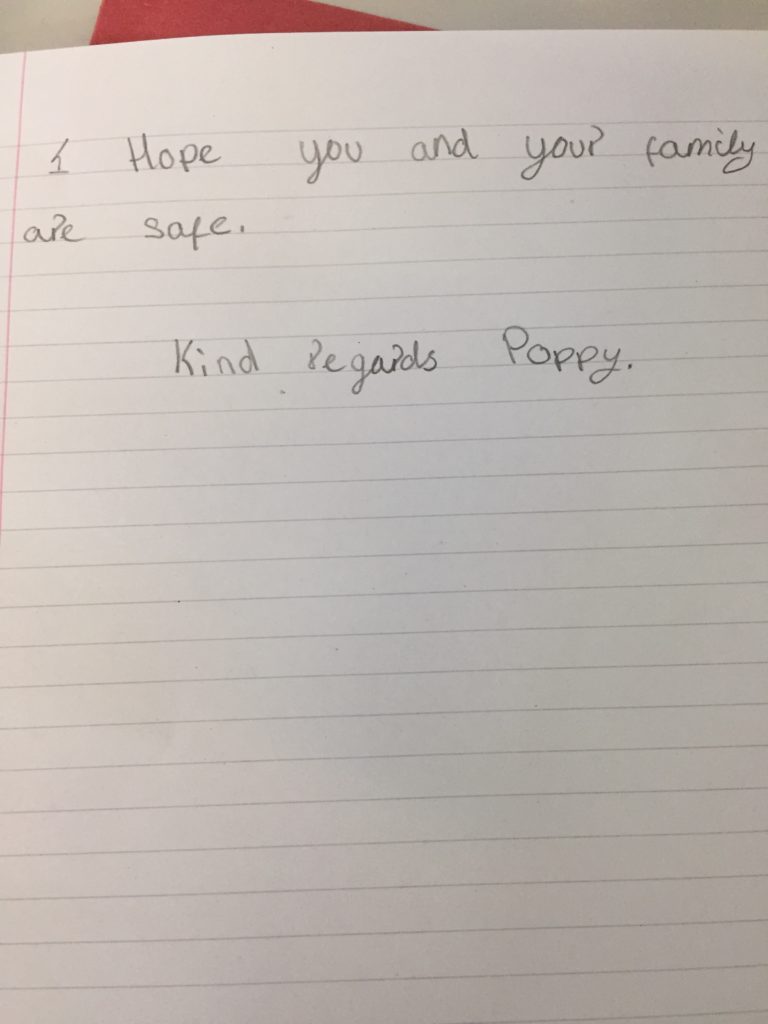 I Hope you and your family
are safe.
Kind regards Poppy.